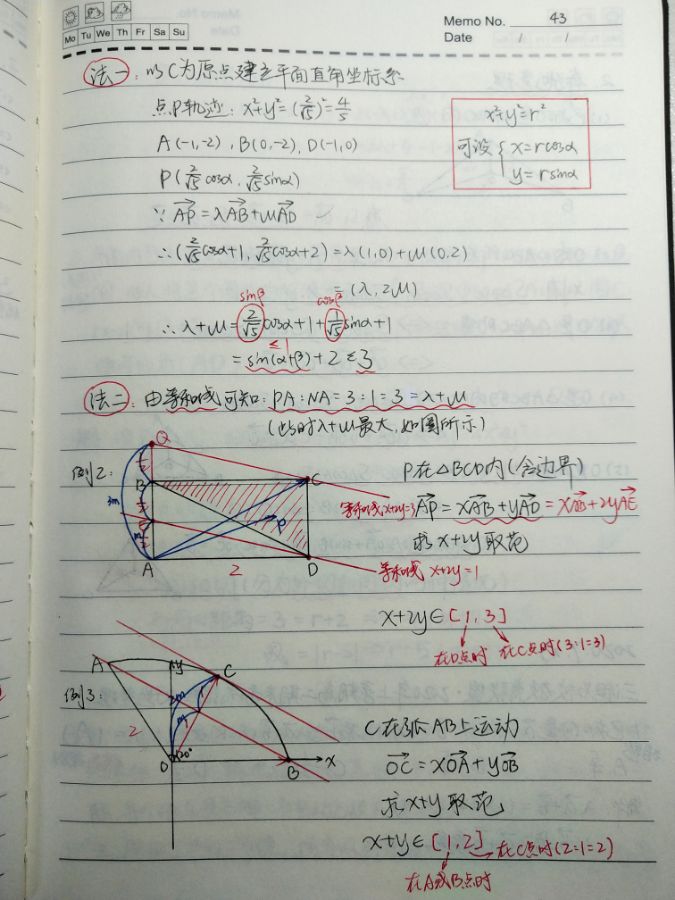 Memo No. 43
Mo Tu We Th Fr Sa Su
Date / /
法一:以C为原点建立平面直角坐标系
点P轨迹:x²+y²=(2/√5)²=4/5
x²+y²=r²
可设{x=rcosα
y=rsinα
A(-1,-2),B(0,-2),D(-1,0)
P(2/√5cosα,2/√5sinα)
∵AP=λAB+μAD
∴(2/√5cosα+1,2/√5cosα+2)=λ(1,0)+μ(0,2)
=(λ,2μ)
sinβ cosβ
∴λ+μ=2/√5cosα+1+1/√5sinα+1
≤1
=sin(α+β)+2≤3
法二:由等和线可知:PA:NA=3:1=3=λ+μ
(此时λ+μ最大,如图所示)
例2:
Q
B
C
3m
m
P
A
2
D
P在△BCD内(含边界)
等和线x+2y=3
AP=xAB+yAD=xAB+2yAE
求x+2y取范
等和线 x+2y=1
x+2y∈[1,3]
在D点时 在C点时(3:1=3)
例3:
A
y
C
2m
m
2
O
120°
B
x
C在弧AB上运动
OC=xOA+yOB
求x+y取范
x+y∈[1,2]
在C点时(2:1=2)
在A或B点时